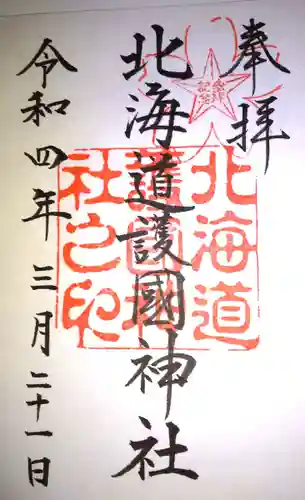 奉拝
北海道護國神社
令和四年三月二十一日
北海道
護國神
社之印